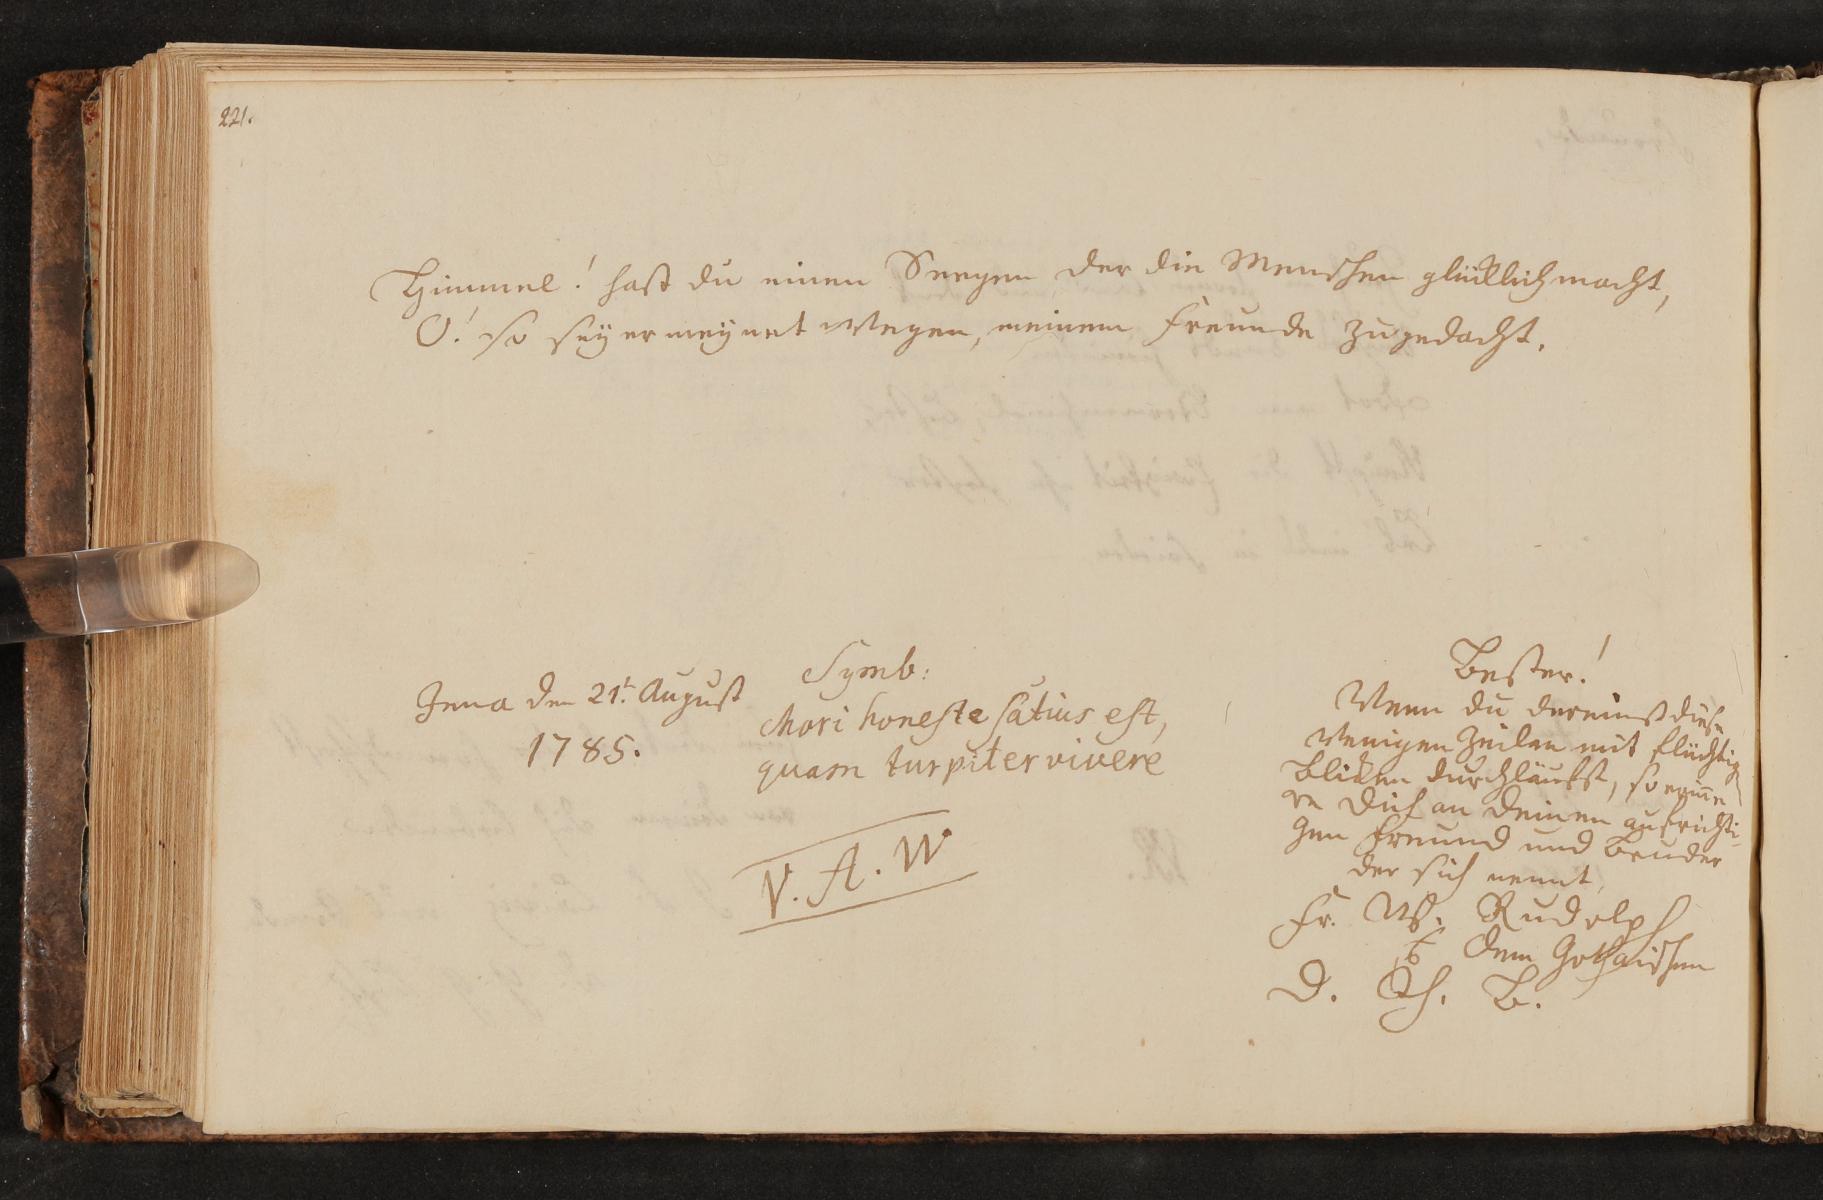 221.
Himmel! hast du einen Seegen der die Menschen glücklich macht,
O! so seÿ er meÿnet Wegen, meinem Freunde zugedacht.
Jena den 21t. August
1785.
Symb:
Mori honeste satius est,
quam turpiter vivere
V. A. W
Bester!
Wenn du dereinst diese
wenigen Zeilen mit flüchtig
Blicken durchläufst, so erinne
re dich an deinen aufrichti-
gen Freund und Bruder
der sich nennt,
Fr. W. Rudolph
dem Gothaischen
D. B.